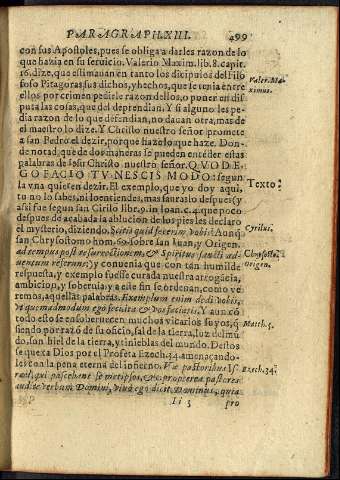 PARAGRAPH.XIII. 499
con sus Apostoles, pues se obliga a darles razon de lo
que hazia en su seruicio. Valerio Maxim. lib. 8. capit.
16. dize, que estimauan en tanto los dicipulos del Filo
sofo Pitagoras sus dichos, y hechos, que se tenia entre
ellos por crimen pedirle razon dellos, o poner en dis
puta las cosas, que del deprendian. Y si alguno les pe-
dia razon de lo que defendian, no dauan otra, mas de
el maestro lo dize. Y Christo nuestro señor promete
a san Pedro el dezir, porque haze lo que haze. Don-
de notad, que de dos maneras se pueden entẽder estas
palabras de Iesu Christo nuestro señor. QVOD E-
GO FACIO TV NESCIS MODO: segun
la vna quiere dezir. El exemplo, que yo doy aqui,
tu no lo sabes, ni lo entiendes, mas sauraslo despues: (y
assi fue segun san Cirilo libr. 9. in Ioan. c. 4. que poco
despues de acabada la ablucion de los pies les declaro
el mysterio, diziendo. Scitis quid fecerim vobis? Aunq̃
san Chrysostomo hom. 69. Sobre san Iuan, y Origen.
ad tempus post resurrectionem, & Spiritus sancti ad-
uentum referunt;) y conuenia que con tan humilde
respuesta, y exemplo fuesse curada nuestra arrogãcia,
ambicion, y soberuia: y a este fin se ordenan, como ve
remos, aquellas palabras. Exemplum enim dedi vobis,
vt quemadmodum ego feci ita & vos faciatis. Y aun cõ
todo esto se ensoberuecen muchos vicarios suyos, q̃
siendo por razõ de su oficio, sal de la tierra, luz del mũ
do, son hiel de la tierra, y tinieblas del mundo. Destos
se quexa Dios por el Profeta Ezech. 34. amenaçando-
les cõ la pena eterna del infierno. Væ pastoribus Is-
rael, qui pascebant se metipsos, &c. propterea pastores
audite verbum Domini, viuo ego dicit Dominus, quia
Ii 3 pro
Valer. Ma-
ximus.
Texto.
Cyrilus.
Chrysosto.
Origen.
Matth. 5.
Ezech. 34.